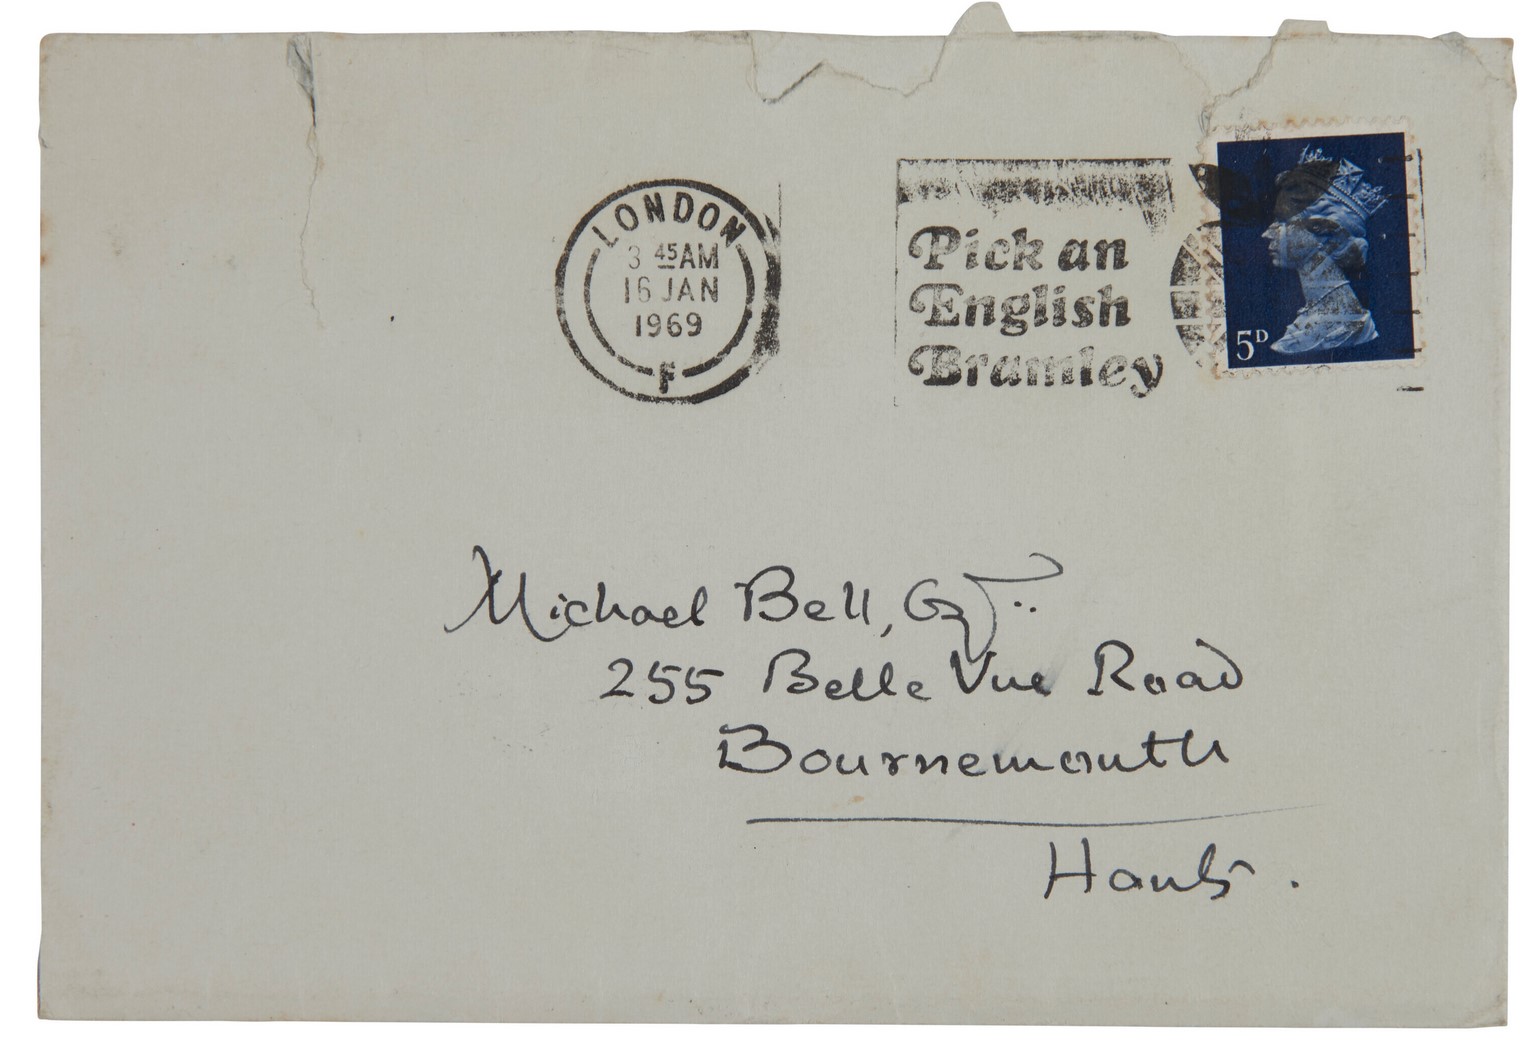 LONDON
3 45AM
16 JAN
1969
F
Pick an
English
Bramley
5D
Michael Bell, Esq..
255 Belle Vue Road
Bournemouth
Hants.